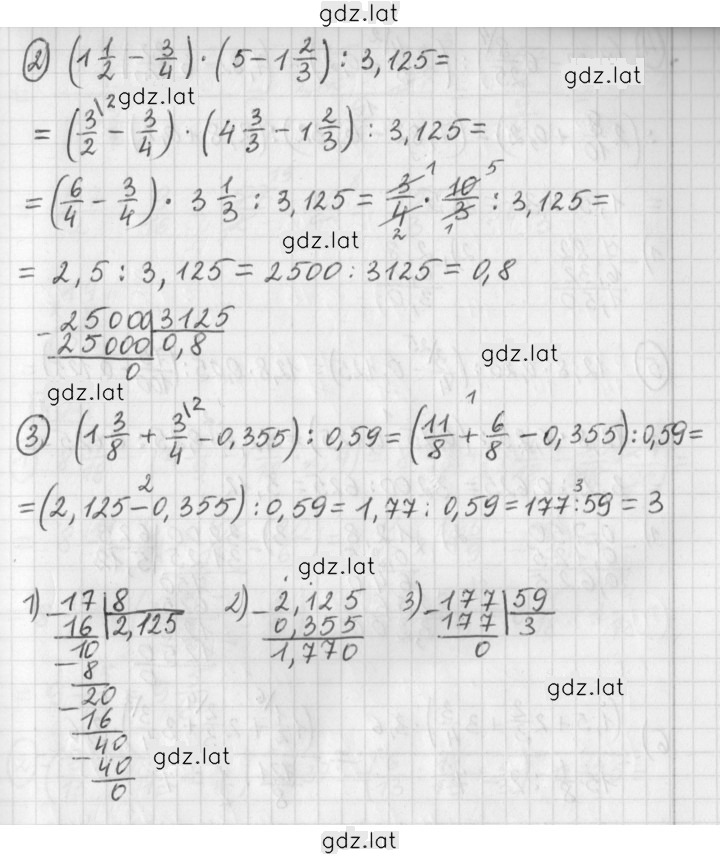 gdz.lat
2) (1 1/2 − 3/4) · (5 − 1 2/3) : 3,125 =
gdz.lat
gdz.lat
= (3/2 \2 − 3/4) · (4 3/3 − 1 2/3) : 3,125 =
= (6/4 − 3/4) · 3 1/3 : 3,125 = 3/4 1 2 · 10/3 5 1 : 3,125 =
gdz.lat
= 2,5 : 3,125 = 2500 : 3125 = 0,8
− 25000 | 3125
25000 | 0,8
0
gdz.lat
gdz.lat
3) (1 3/8 + 3/4 \2 − 0,355) : 0,59 = (11/8 +1 6/8 − 0,355) : 0,59 =
= (2,125 −2 0,355) : 0,59 = 1,77 : 0,59 = 177 :3 59 = 3
gdz.lat
1) − 17 | 8
16 | 2,125
− 10
8
− 20
16
− 40
40
0
2) − 2,125
0,355
1,770
3) − 177 | 59
177 | 3
0
gdz.lat
gdz.lat
gdz.lat